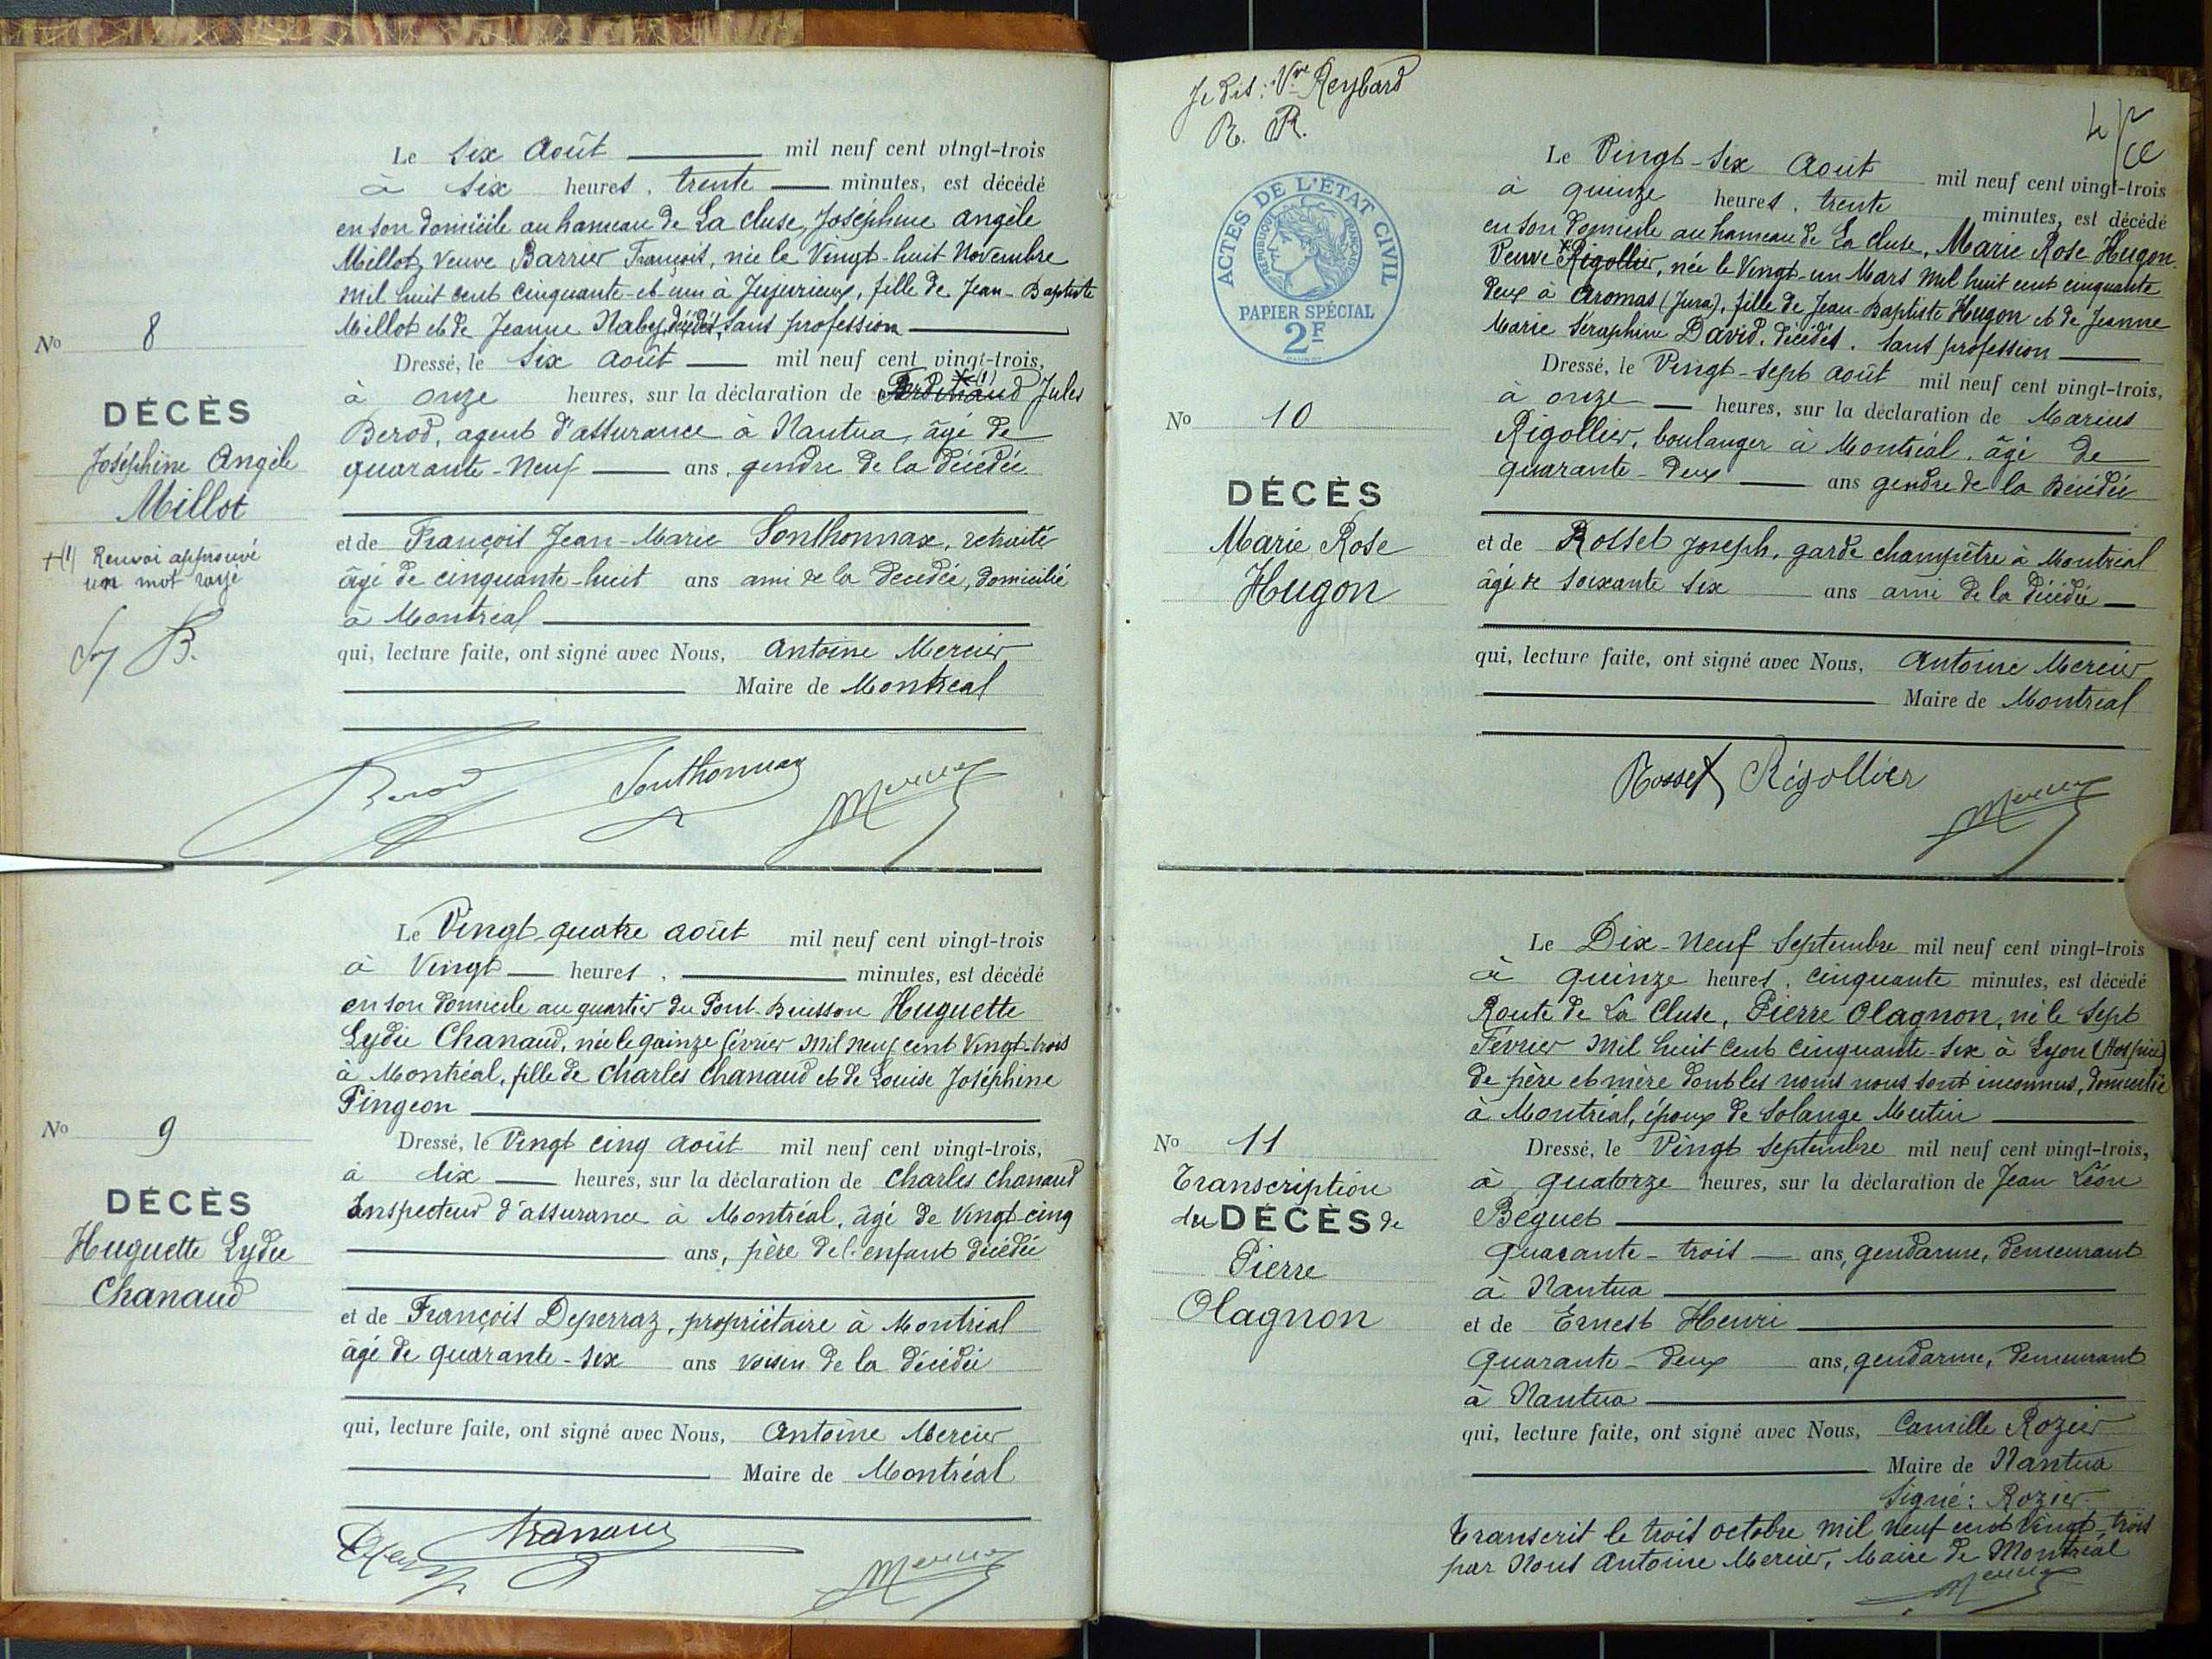 Le Six Août mil neuf cent vingt-trois
à six heures, trente minutes, est décédé
en son domicile au hameau de La Cluse, Joséphine Angèle
Millot, Veuve Barrier François, née le Vingt-huit Novembre
mil huit cent cinquante-et-un à Jujurieux, fille de Jean-Baptiste
Millot et de Jeanne Naby décédés, sans profession
No 8
DÉCÈS
Joséphine Angèle
Millot
+(1) Renvoi approuvé
un mot rayé
B.
Dressé, le Six août mil neuf cent vingt-trois,
à onze heures, sur la déclaration de Ferdinand (1) Jules
Berod, agent d'assurance à Nantua, âgé de
quarante-neuf ans, gendre de la décédée
et de François Jean-Marie Sonthonnax, retraité
âgé de cinquante-huit ans ami de la décédée, domicilié
à Montréal
qui, lecture faite, ont signé avec Nous, Antoine Mercier
Maire de Montréal
Berod Sonthonnax Mercier
Le Vingt-quatre août mil neuf cent vingt-trois
à Vingt heures, minutes, est décédé
en son domicile au quartier du Pont-Buisson Huguette
Lydie Chanaud, née le quinze février mil neuf cent Vingt-trois
à Montréal, fille de Charles Chanaud et de Louise Joséphine
Pingeon
No 9
DÉCÈS
Huguette Lydie
Chanaud
Dressé, le Vingt cinq août mil neuf cent vingt-trois,
à dix heures, sur la déclaration de Charles Chanaud
Inspecteur d'assurance à Montréal, âgé de Vingt-cinq
ans, père de l'enfant décédée
et de François Deperraz, propriétaire à Montréal
âgé de quarante-six ans voisin de la décédée
qui, lecture faite, ont signé avec Nous, Antoine Mercier
Maire de Montréal
Chanaud Mercier
Je dis: Vve Reybard
R. R.
4
ACTES DE L'ÉTAT CIVIL
RÉPUBLIQUE FRANÇAISE
PAPIER SPÉCIAL
2F
Le Vingt-six Août mil neuf cent vingt-trois
à quinze heures, trente minutes, est décédé
en son domicile au hameau de La Cluse, Marie Rose Hugon
Veuve Rigollier, née le Vingt-un Mars mil huit cent cinquante
deux à Aromas (Jura), fille de Jean-Baptiste Hugon et de Jeanne
Marie Séraphine David, décédés. Sans profession
No 10
DÉCÈS
Marie Rose
Hugon
Dressé, le Vingt-sept août mil neuf cent vingt-trois,
à onze heures, sur la déclaration de Marius
Rigollier, boulanger à Montréal, âgé de
quarante-deux ans gendre de la décédée
et de Rosset Joseph, garde champêtre à Montréal
âgé de soixante six ans ami de la décédée
qui, lecture faite, ont signé avec Nous, Antoine Mercier
Maire de Montréal
Rosset Rigollier Mercier
Le Dix-Neuf Septembre mil neuf cent vingt-trois
à quinze heures, cinquante minutes, est décédé
Route de La Cluse, Pierre Olagnon, né le sept
Février mil huit cent cinquante-six à Lyon (Hospice)
de père et mère dont les noms nous sont inconnus, domicilié
à Montréal, époux de Solange Mutin
No 11
Transcription
du DÉCÈS de
Pierre
Olagnon
Dressé, le Vingt septembre mil neuf cent vingt-trois,
à quatorze heures, sur la déclaration de Jean Léon
Béguet
quarante-trois ans, gendarme, demeurant
à Nantua
et de Ernest Henri
Quarante-deux ans, gendarme, demeurant
à Nantua
qui, lecture faite, ont signé avec Nous, Camille Rozier
Maire de Nantua
Signé: Rozier
Transcrit le trois octobre mil neuf cent Vingt-trois
par Nous Antoine Mercier, Maire de Montréal
Mercier